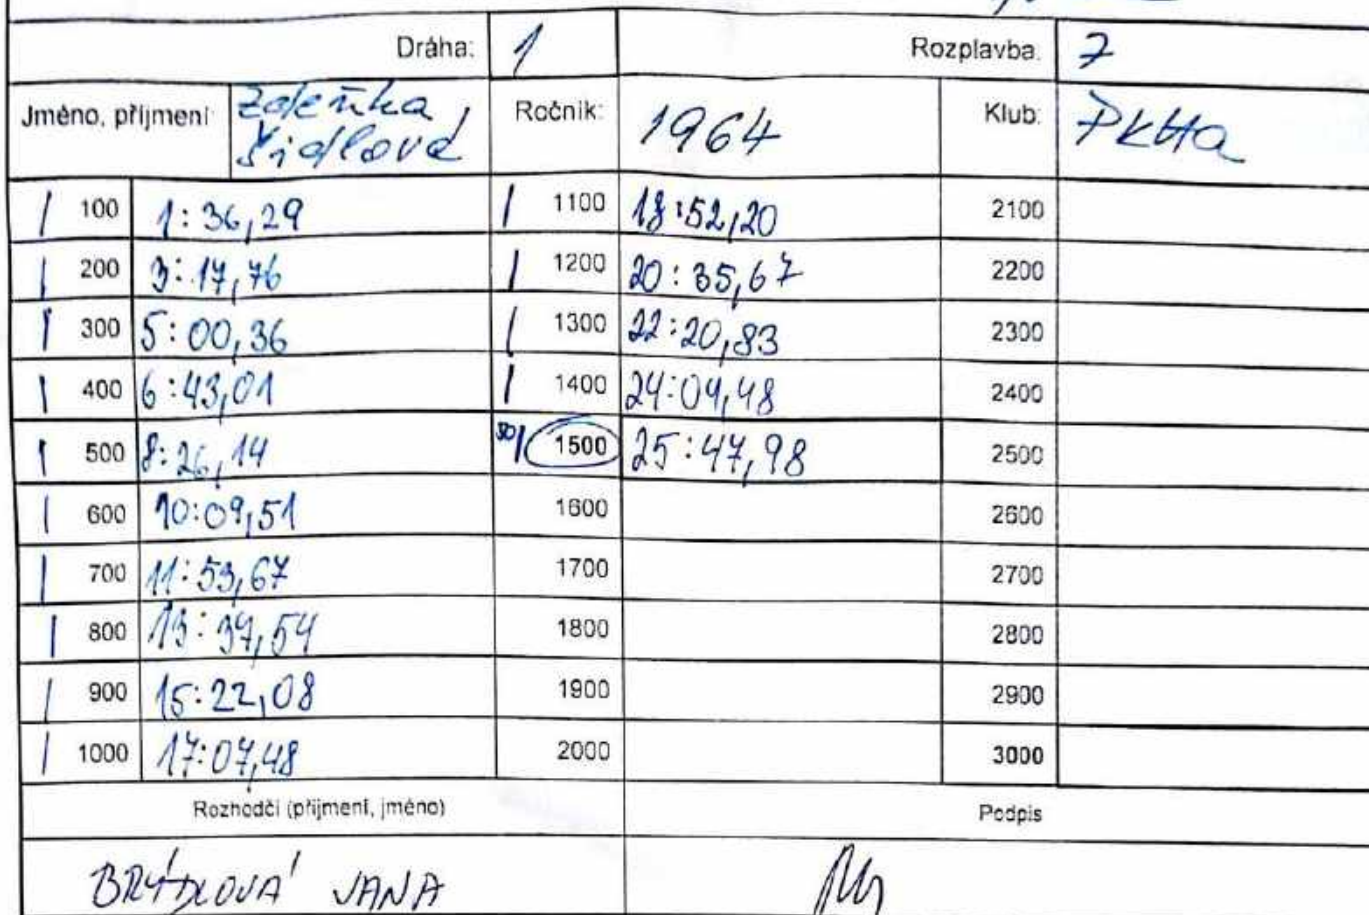 Dráha: 1 Rozplavba: 7
Jméno, příjmení: Zdeňka Ročník: 1964 Klub: PKHa
Šidlová
| 100 1:36,29 | 1100 18:52,20 2100
| 200 3:17,76 | 1200 20:35,67 2200
| 300 5:00,36 | 1300 22:20,83 2300
| 400 6:43,01 | 1400 24:04,48 2400
| 500 8:26,14 30/ 1500 25:47,98 2500
| 600 10:09,51 1600 2600
| 700 11:53,67 1700 2700
| 800 13:37,54 1800 2800
| 900 15:22,08 1900 2900
| 1000 17:07,48 2000 3000
Rozhodčí (příjmení, jméno) Podpis
BRÝDLOVÁ JANA